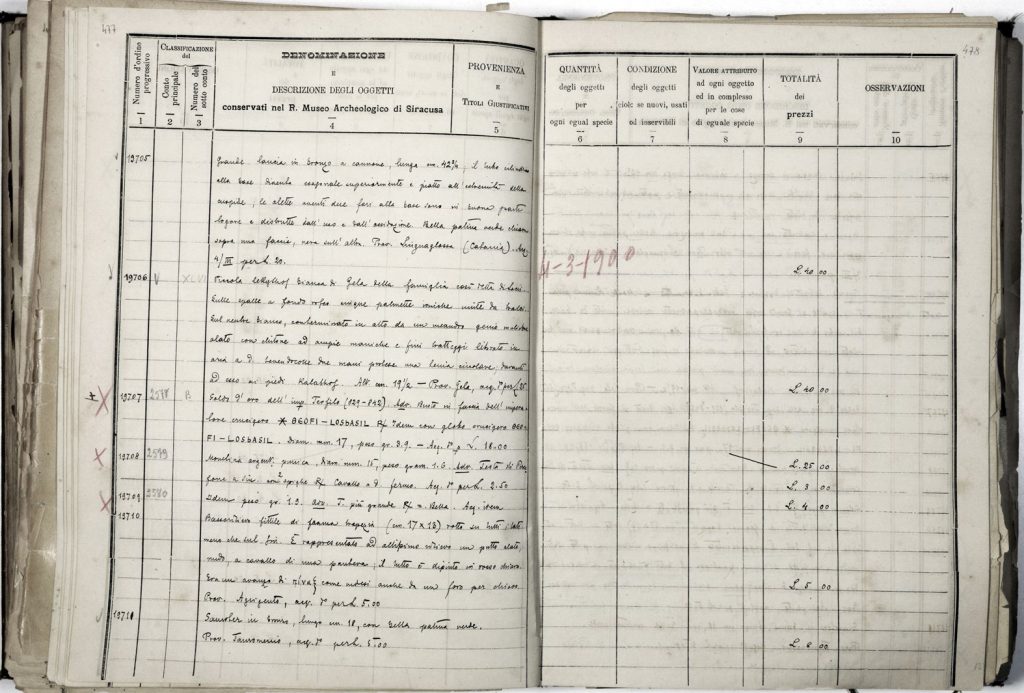 477
Numero d'ordine progressivo
1
CLASSIFICAZIONE del
Conto principale
2
Numero del sotto conto
3
DENOMINAZIONE
E
DESCRIZIONE DEGLI OGGETTI
conservati nel R. Museo Archeologico di Siracusa
4
PROVENIENZA
E
TITOLI GIUSTIFICATIVI
5
19705
Grande lancia in bronzo a cannone, lunga cm. 42 3/4; il tubo
alla base diventa esagonale superiormente e piatto all'estremità della
cuspide; le alette aventi due fori alla base sono in buona parte
logore e distrutte dall'uso e dall'ossidazione. Bella patina verde chiara
sopra una faccia, nera sull'altra. Prov. Linguaglossa (Catania). Acq.
4/III per L. 20.
19706 V
Piccola lekythos bianca di Gela della famiglia così detta di
Sulle spalle a fondo roseo cinque palmette ioniche unite da
Sul ventre bianco, conterminato in alto da un meandro genio
alato con chitone ad ampie maniche e fini tratteggi librato in
aria a d. tenendo colle due mani protese una tenia circolare; davanti
ad esso ai piedi kalathos. Alt. cm. 19 1/2 — Prov. Gela, acq. 1° per L. 25
19707 2578 B
Soldo d'oro dell'imp. Teofilo (829-842). Adv. Busto in faccia dell'impera-
tore crucigero * ΘEOFI-LOSbASIL R/ Idem con globo crucigero ΘEO
FI-LOSbASIL. Diam. mm. 17, peso gr. 3.9. — Acq. 1° p. L. 18.00
19708 2579
Monetina argent. punica. Diam. mm. 15, peso gramm. 1.6. Adv. Testa di Perse
fone a sin. con 2 spighe R/ Cavallo a d. fermo. Acq. 1° per L. 2.50
19709 2580
Idem peso gr. 1.3. Adv. T. più grande R/ = Bella. Acq. idem
19710
Bassorilievo fittile di forma trapezia (cm. 17 × 13) rotto su tutti i lati
meno che sul sin. È rappresentato ad altissimo rilievo un putto alato,
nudo, a cavallo di una pantera; il tutto è dipinto in rosso chiaro.
Era un avanzo di πίναξ come vedesi anche da un foro per chiodo
Prov. Agrigento, acq. 1° per L. 5.00
19711
Sauroter in bronzo, lungo cm. 18, con bella patina verde.
Prov. Tauromenio, acq. 1° per L. 5.00
478
QUANTITÀ
degli oggetti
per
ogni egual specie
6
CONDIZIONE
degli oggetti
cioè: se nuovi, usati
od inservibili
7
VALORE ATTRIBUITO
ad ogni oggetto
ed in complesso
per le cose
di eguale specie
8
TOTALITÀ
dei
prezzi
9
OSSERVAZIONI
10
4-3-1900
L. 40 00
L. 40 00
L. 25 00
L. 3 00
L. 4 00
L. 5 00
L. 8 00